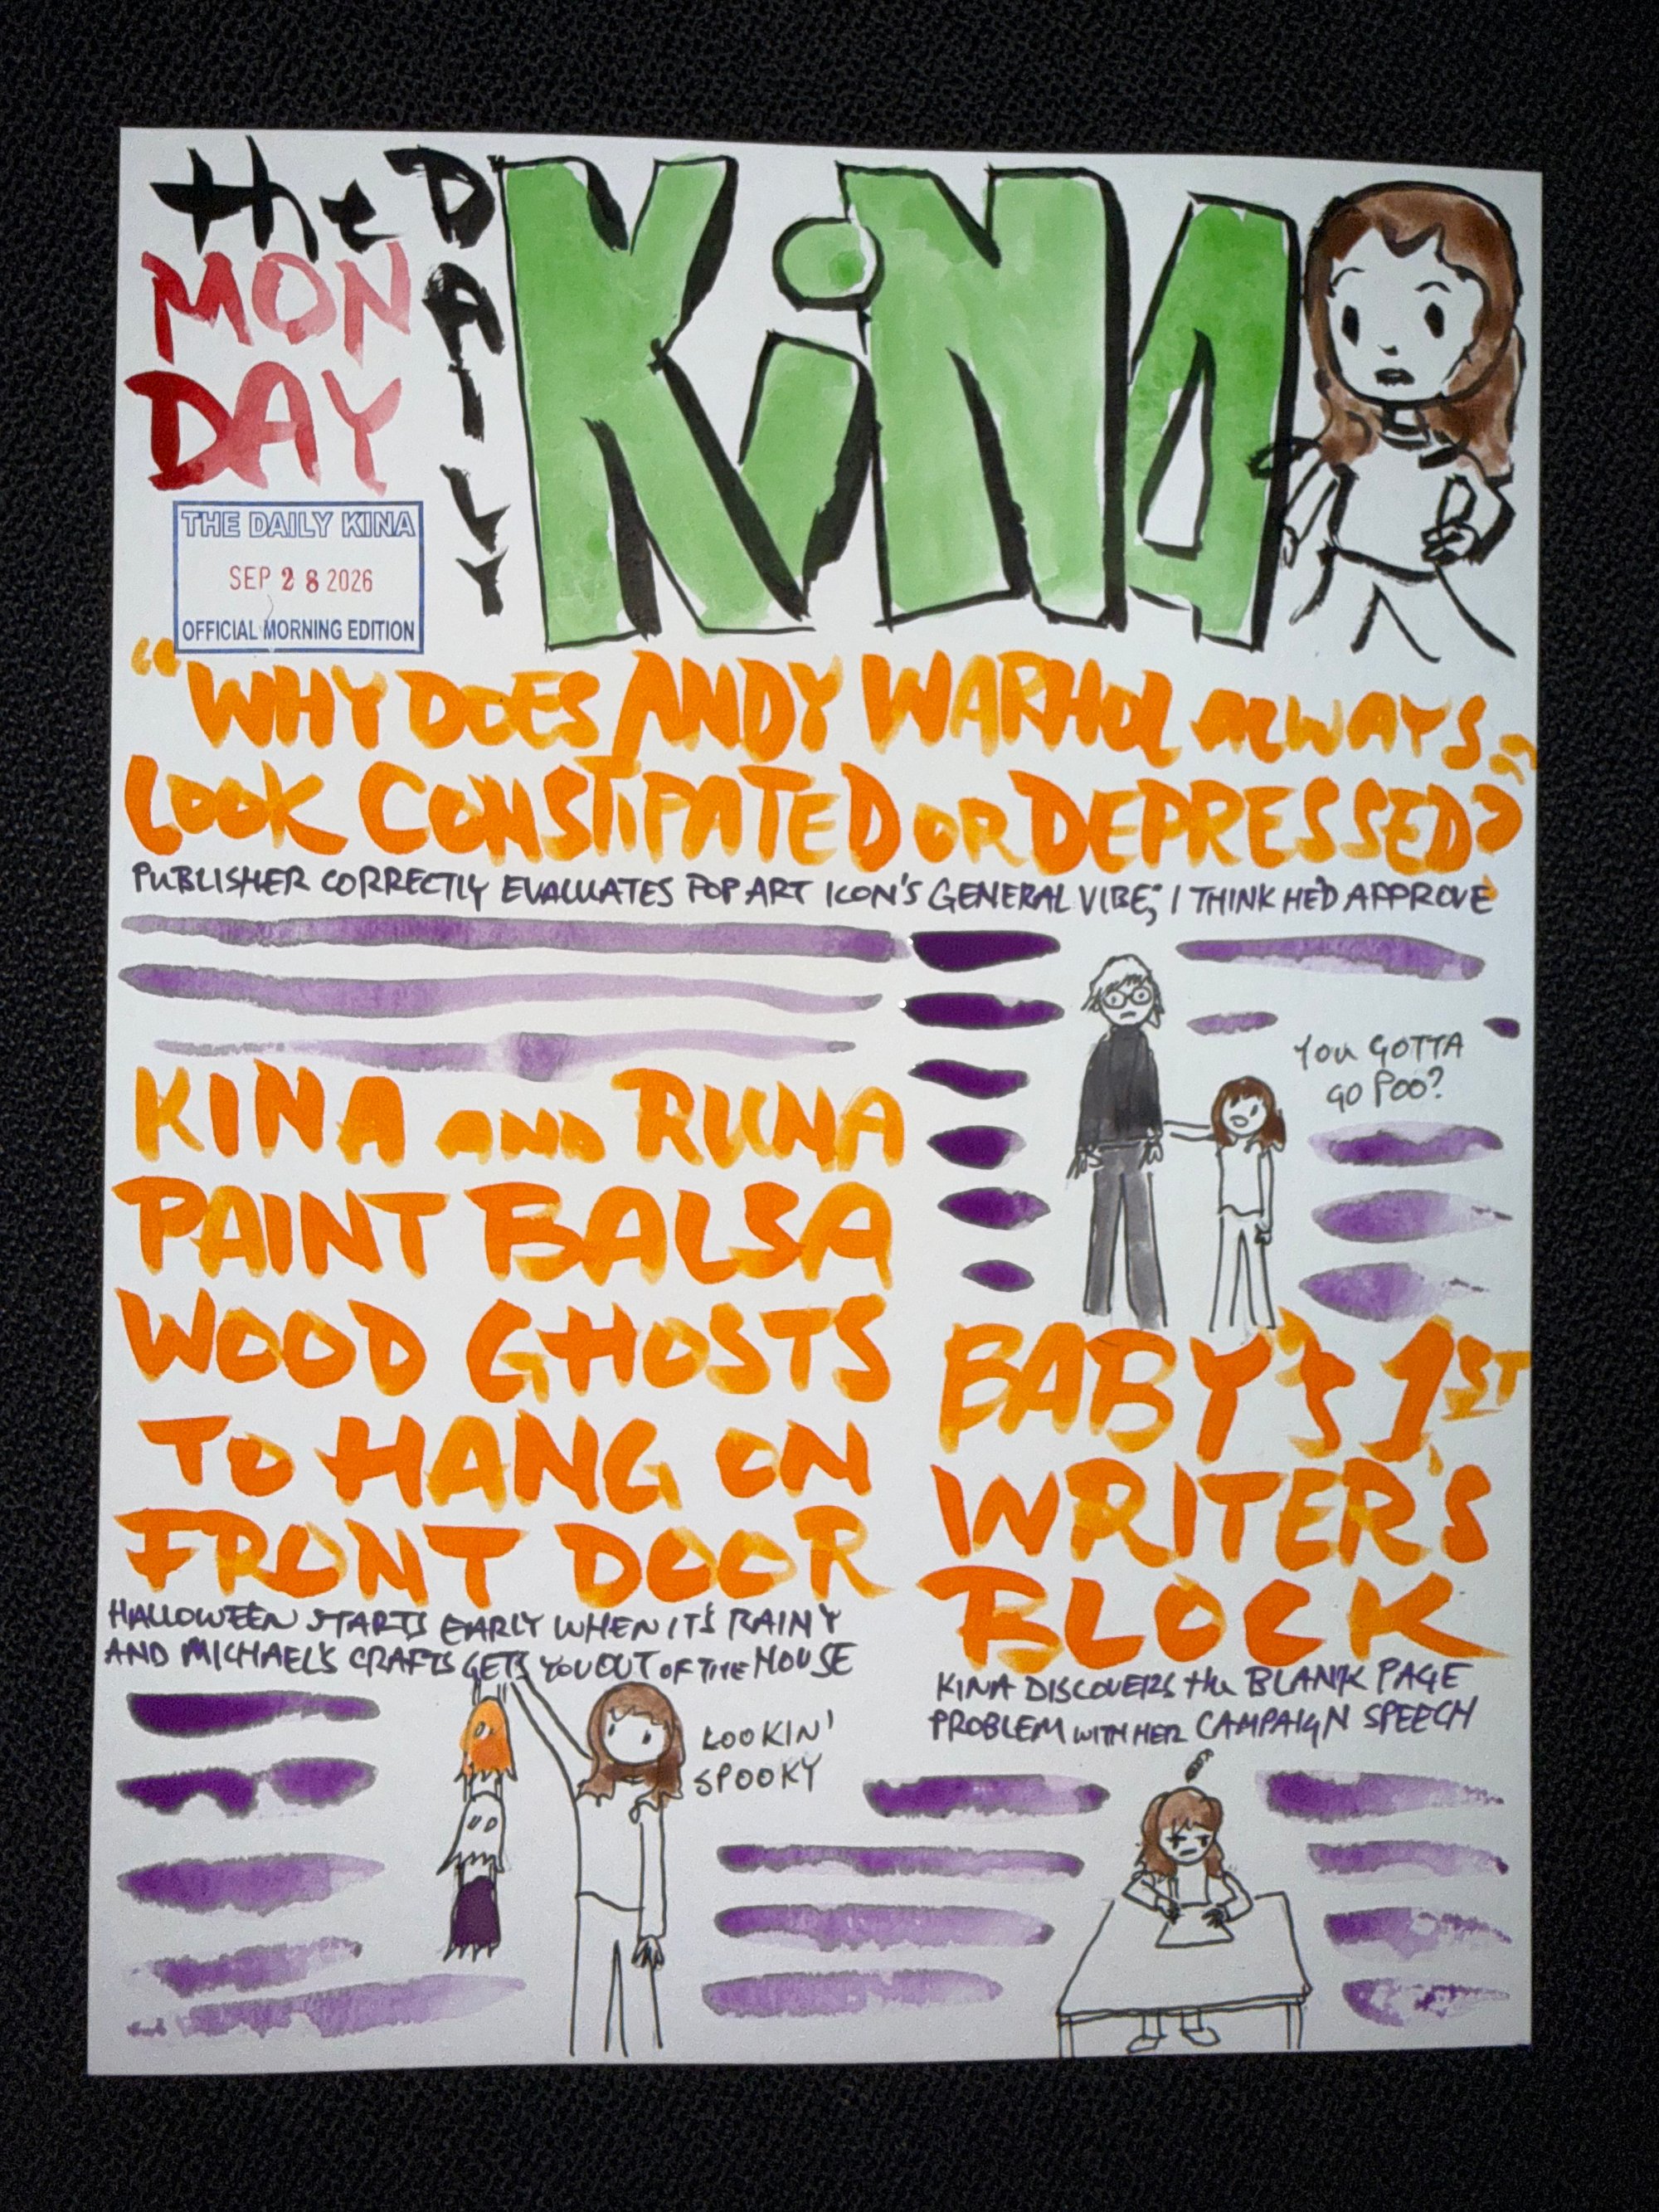 the
MON
DAY
DAILY
KiNA
THE DAILY KINA
SEP 28 2026
OFFICIAL MORNING EDITION
"WHY DOES ANDY WARHOL ALWAYS
LOOK CONSTIPATED OR DEPRESSED?"
PUBLISHER CORRECTLY EVALUATES POP ART ICON'S GENERAL VIBE; I THINK HE'D APPROVE
YOU GOTTA
GO POO?
KINA AND RUNA
PAINT BALSA
WOOD GHOSTS
TO HANG ON
FRONT DOOR
HALLOWEEN STARTS EARLY WHEN IT'S RAINY
AND MICHAEL'S CRAFTS GETS YOU OUT OF THE HOUSE
LOOKIN'
SPOOKY
BABY'S 1ST
WRITER'S
BLOCK
KINA DISCOVERS the BLANK PAGE
PROBLEM WITH HER CAMPAIGN SPEECH